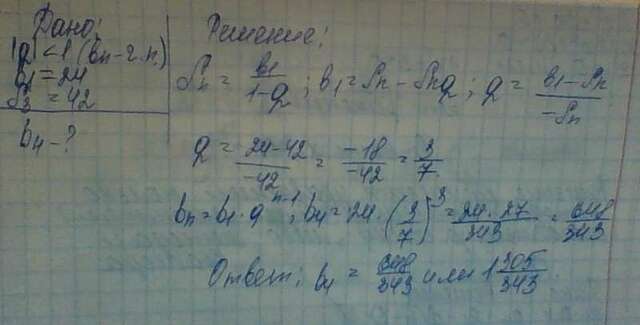 Дано:
|q| < 1 (bn - г. п)
b1 = 24
S3 = 42
b4 - ?
Решение:
Sn = b1/1-q ; b1 = Sn - Snq ; q = b1 - Sn/-Sn
q = 24-42/-42 = -18/-42 = 3/7.
bn = b1 · q^n-1 ; b4 = 24 · (3/7)^3 = 24 · 27/343 = 648/343
Ответ: b4 = 648/343 или 1 305/343.